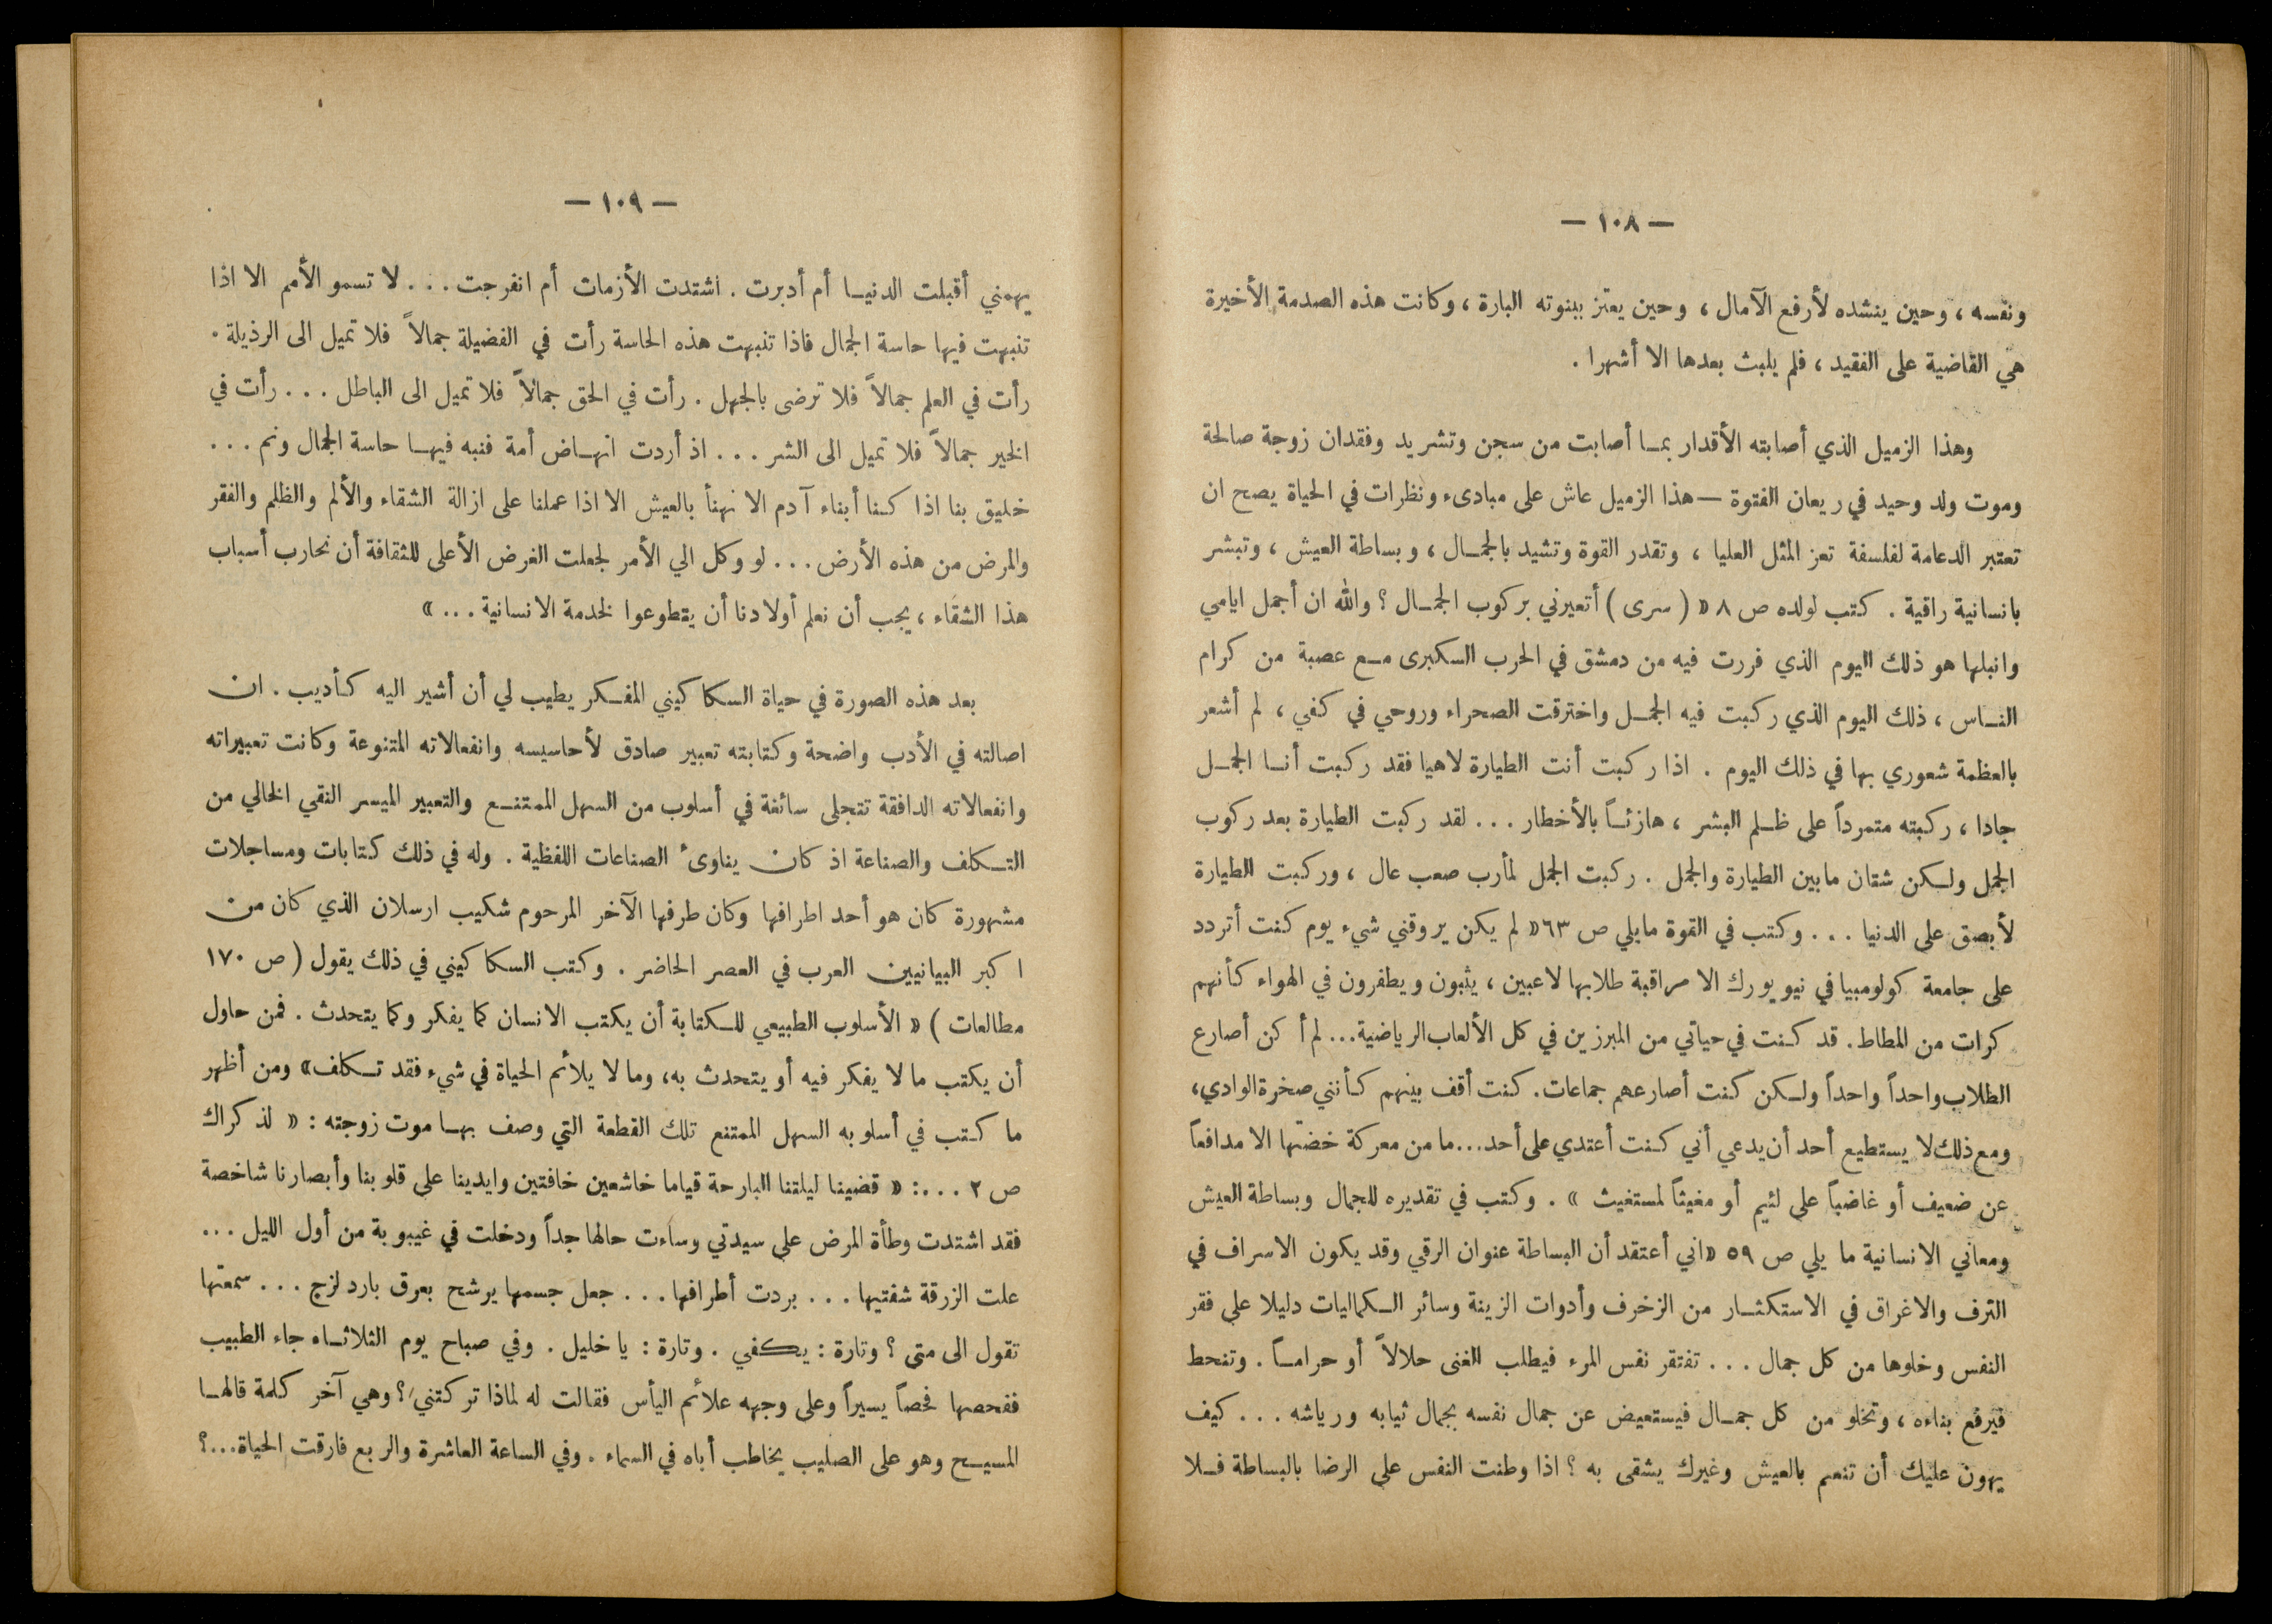 — ١٠٨ —
ونفسه ، وحين ينشده لأرفع الآمال ، وحين يعتز ببنوته البارة ، وكانت هذه الصدمة الأخيرة
هي القاضية على الفقيد ، فلم يلبث بعدها الا أشهرا .
وهذا الزميل الذي أصابته الأقدار بمـا أصابت من سجن وتشريد وفقدان زوجة صالحة
وموت ولد وحيد في ريعان الفتوة — هذا الزميل عاش على مبادىء ونظرات في الحياة يصح ان
تعتبر الدعامة لفلسفة تعز المثل العليا ، وتقدر القوة وتشيد بالجمـال ، وبساطة العيش ، وتبشر
بانسانية راقية . كتب لولده ص ٨ « ( سرى ) أتعيرني بركوب الجمـال ؟ والله ان أجمل ايامي
وانبلها هو ذلك اليوم الذي فررت فيه من دمشق في الحرب الكبرى مـع عصبة من كرام
النـاس ، ذلك اليوم الذي ركبت فيه الجمـل واخترقت الصحراء وروحي في كفي ، لم أشعر
بالعظمة شعوري بها في ذلك اليوم . اذا ركبت أنت الطيارة لاهيا فقد ركبت أنـا الجمـل
جادا ، ركبته متمرداً على ظـلم البشر ، هازئـاً بالأخطار ... لقد ركبت الطيارة بعد ركوب
الجمل ولكن شتان ما بين الطيارة والجمل . ركبت الجمل لمأرب صعب عال ، وركبت الطيارة
لأبصق على الدنيا ... وكتب في القوة ما يلي ص ٦٣ « لم يكن يروقني شيء يوم كنت أتردد
على جامعة كولومبيا في نيويورك الا مراقبة طلابها لاعبين ، يثبون ويطفرون في الهواء كأنهم
كرات من المطاط . قد كنت في حياتي من المبرزين في كل الألعاب الرياضية... لم أكن أصارع
الطلاب واحداً واحداً ولكن كنت أصارعهم جماعات . كنت أقف بينهم كأنني صخرة الوادي،
ومع ذلك لا يستطيع أحد أن يدعي أني كنت أعتدي على أحد...ما من معركة خضتها الا مدافعاً
عن ضعيف أو غاضباً على لئيم أو مغيثاً لمستغيث » . وكتب في تقديره للجمال وبساطة العيش
ومعاني الانسانية ما يلي ص ٥٩ « اني أعتقد أن البساطة عنوان الرقي وقد يكون الاسراف في
الترف والاغراق في الاستكثـار من الزخرف وأدوات الزينة وسائر الـكماليات دليلا على فقر
النفس وخلوها من كل جمال ... تفتقر نفس المرء فيطلب الغنى حلالاً أو حرامـاً . وتنحط
فيرفع بناءه ، وتخلو من كل جمـال فيستعيض عن جمال نفسه بجمال ثيابه ورياشه ... كيف
يهون عليك أن تنعم بالعيش وغيرك يشقى به ؟ اذا وطنت النفس على الرضا بالبساطة فـلا
— ١٠٩ —
يهمني أقبلت الدنيـا أم أدبرت . اشتدت الأزمات أم انفرجت ... لا تسمو الأمم الا اذا
تنبهت فيها حاسة الجمال فاذا تنبهت هذه الحاسة رأت في الفضيلة جمالاً فلا تميل الى الرذيلة .
رأت في العلم جمالاً فلا ترضى بالجهل . رأت في الحق جمالاً فلا تميل الى الباطل ... رأت في
الخير جمالاً فلا تميل الى الشر ... اذ أردت انهـاض أمة فنبه فيهـا حاسة الجمال ونم ...
خليق بنا اذا كنا أبناء آدم الا نهنأ بالعيش الا اذا عملنا على ازالة الشقاء والألم والظلم والفقر
والمرض من هذه الأرض ... لو وكل الي الأمر لجعلت الغرض الأعلى للثقافة أن نحارب أسباب
هذا الشقاء ، يجب أن نعلم أولادنا أن يتطوعوا لخدمة الانسانية ... »
بعد هذه الصورة في حياة السكاكيني المفـكر يطيب لي أن أشير اليه كأديب . ان
اصالته في الأدب واضحة وكتابته تعبير صادق لأحاسيسه وانفعالاته المتنوعة وكانت تعبيراته
وانفعالاته الدافقة تتجلى سائغة في أسلوب من السهل الممتنـع والتعبير الميسر النقي الخالي من
التـكلف والصناعة اذ كان يناوىء الصناعات اللفظية . وله في ذلك كتابات ومساجلات
مشهورة كان هو أحد اطرافها وكان طرفها الآخر المرحوم شكيب ارسلان الذي كان من
اكبر البيانيين العرب في العصر الحاضر . وكتب السكاكيني في ذلك يقول ( ص ١٧٠
مطالعات ) « الأسلوب الطبيعي للـكتابة أن يكتب الانسان كما يفكر وكما يتحدث . فمن حاول
أن يكتب ما لا يفكر فيه أو يتحدث به ، وما لا يلائم الحياة في شيء فقد تـكلف » ومن أظهر
ما كتب في أسلوبه السهل الممتنع تلك القطعة التي وصف بهـا موت زوجته : « لذكراك
ص ٢ ...: « قضينا ليلتنا البارحة قياما خاشعين خافتين وايدينا على قلوبنا وأبصارنا شاخصة
فقد اشتدت وطأة المرض على سيدتي وساءت حالها جداً ودخلت في غيبوبة من أول الليل ...
علت الزرقة شفتيها ... بردت أطرافها ... جعل جسمها يرشح بعرق بارد لزج ... سمعتها
تقول الى متى ؟ وتارة : يكفي . وتارة : يا خليل . وفي صباح يوم الثلاثـاء جاء الطبيب
ففحصها فحصاً يسيراً وعلى وجهه علائم اليأس فقالت له لماذا تركتني ؟ وهي آخر كلمة قالهـا
المسيـح وهو على الصليب يخاطب أباه في السماء . وفي الساعة العاشرة والربع فارقت الحياة...؟